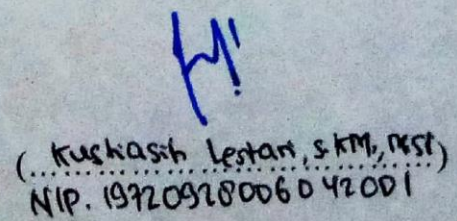 (Kushiasih Lestari, S.KM., M.Si)
NIP. 19720928006042001